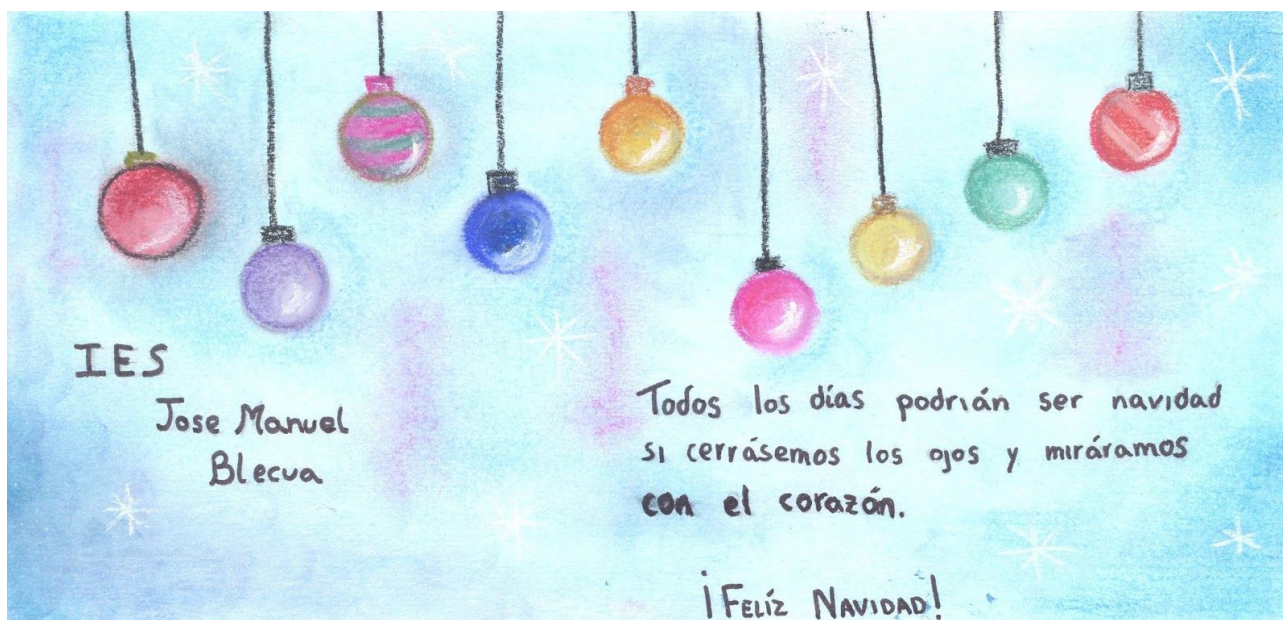 IES
Jose Manuel
Blecua
Todos los días podrián ser navidad
si cerrásemos los ojos y miráramos
con el corazón.
¡FELÍZ NAVIDAD!